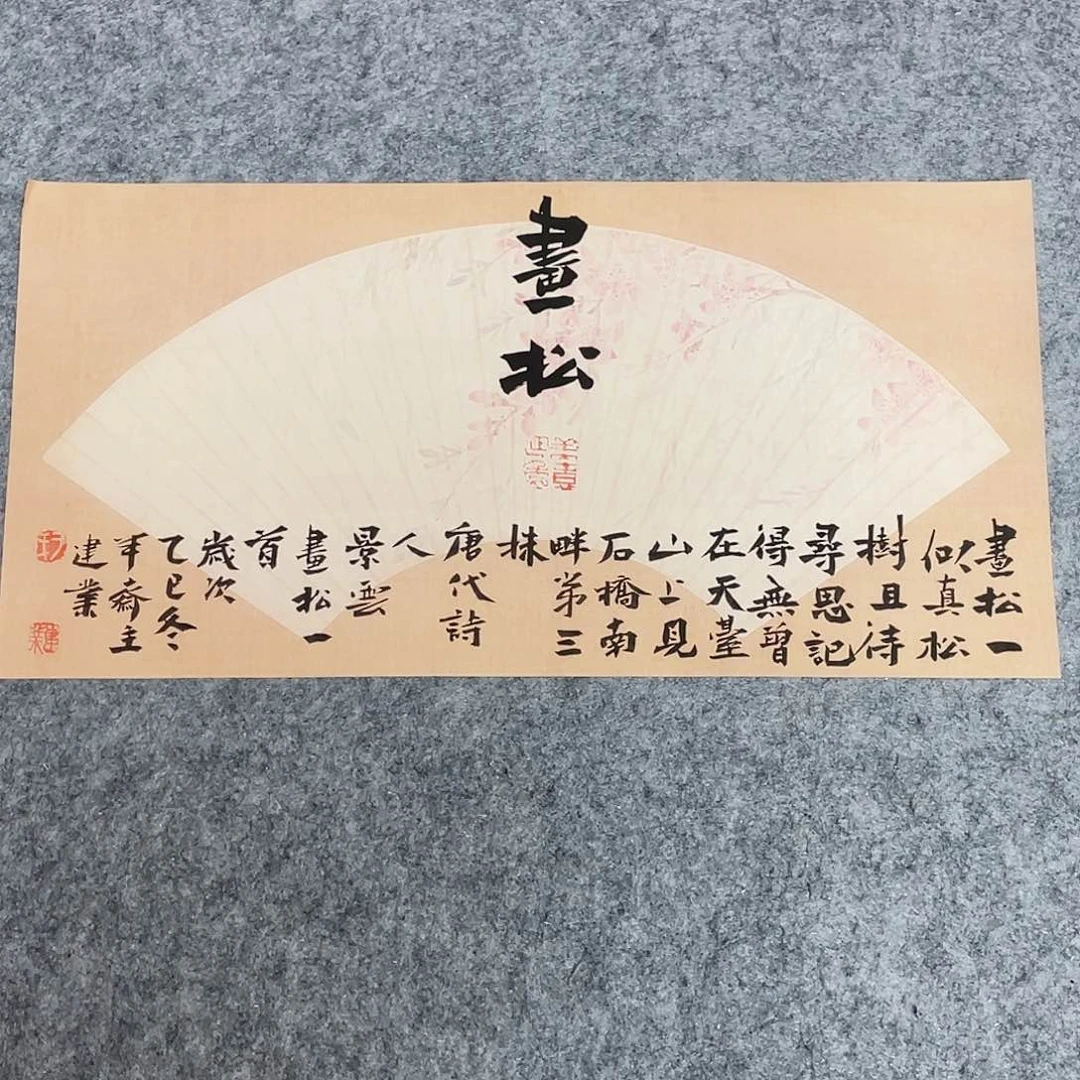 畫松
畫松一
似真松
樹且待
尋思記
得無曾
在天臺
山上見
石橋南
畔第三
株
唐代詩
人
景雲
畫松一
首
歲次
乙巳冬
半齋主
建業